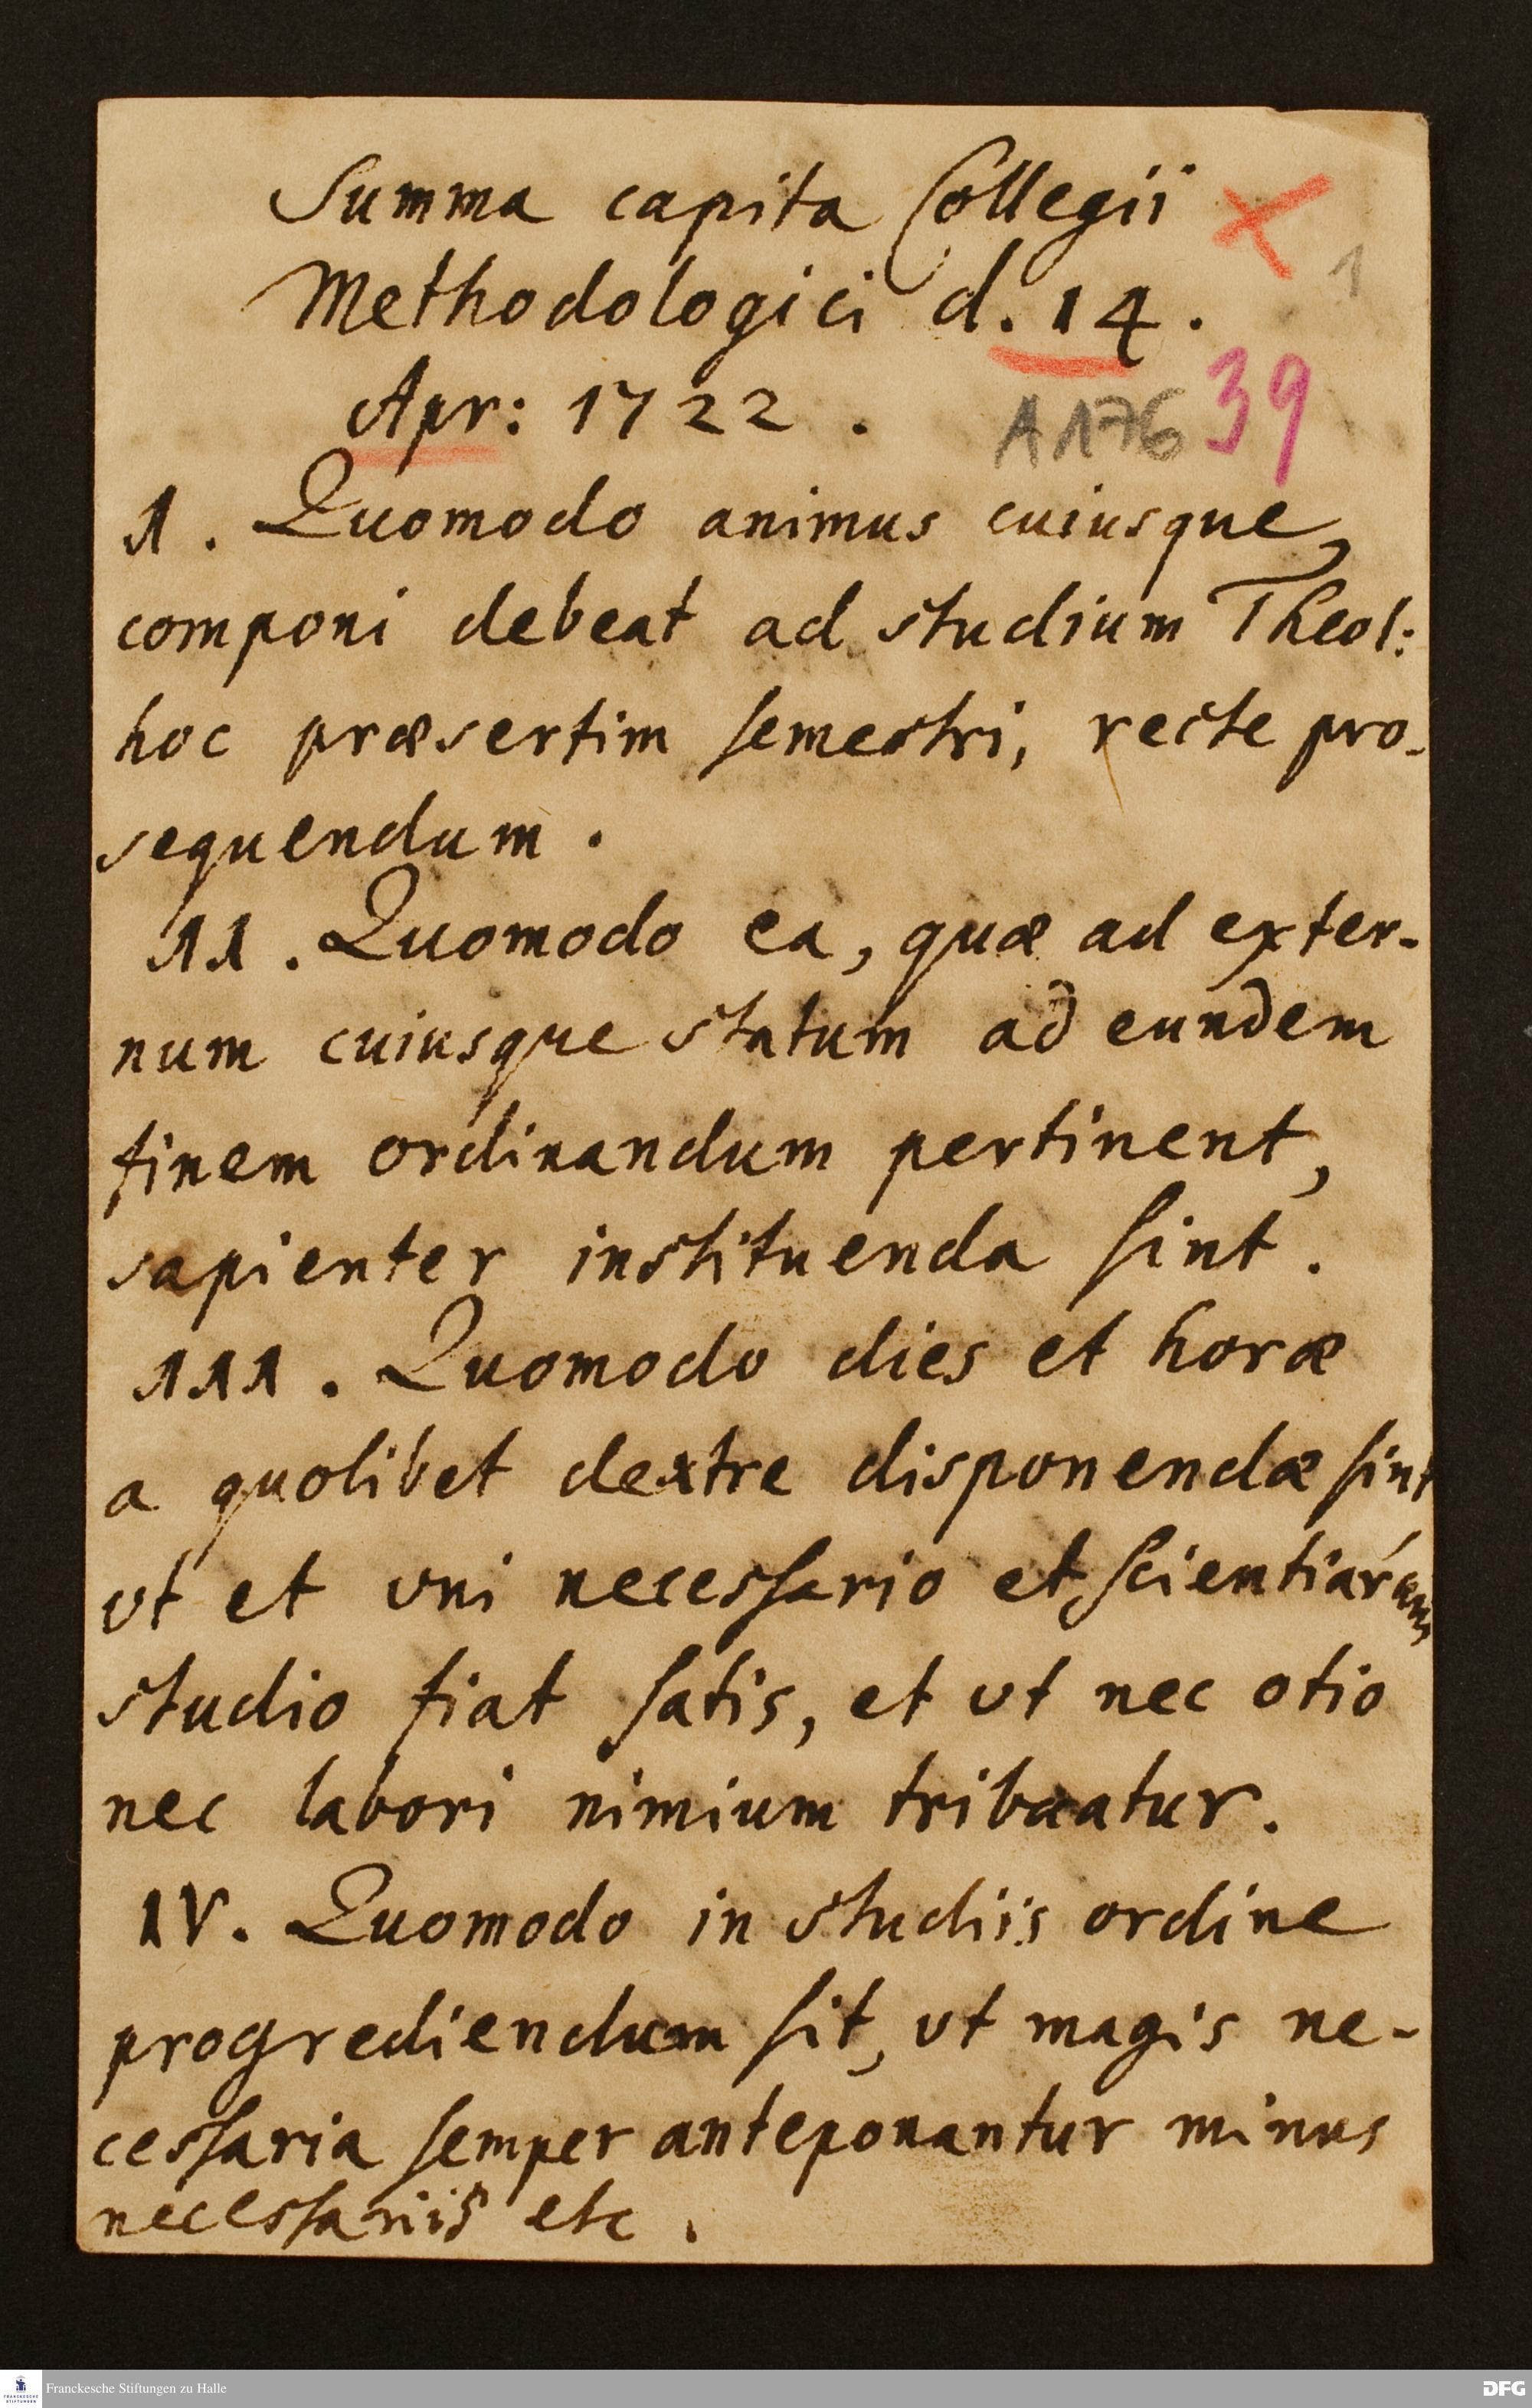 Summa capita Collegii
Methodologici d. 14.
1
Apr: 1722.
A176 39
I. Quomodo animus cuiusque,
componi debeat ad studium Theol:
hoc præsertim semestri, recte pro-
sequendum.
II. Quomodo ea, quæ ad exter-
num cuiusque statum ad eundem
finem ordinandum pertinent,
sapienter instituenda sint.
III. Quomodo dies et horæ
a quolibet dextre disponendæ sint
vt et vni necessario et scientiarum
studio fiat satis, et vt nec otio
nec labori nimium tribuatur.
IV. Quomodo in studiis ordine
progrediendum sit, vt magis ne-
cessaria semper anteponantur minus
necessariis etc.
FRANCKESCHE STIFTUNGEN
Franckesche Stiftungen zu Halle
DFG